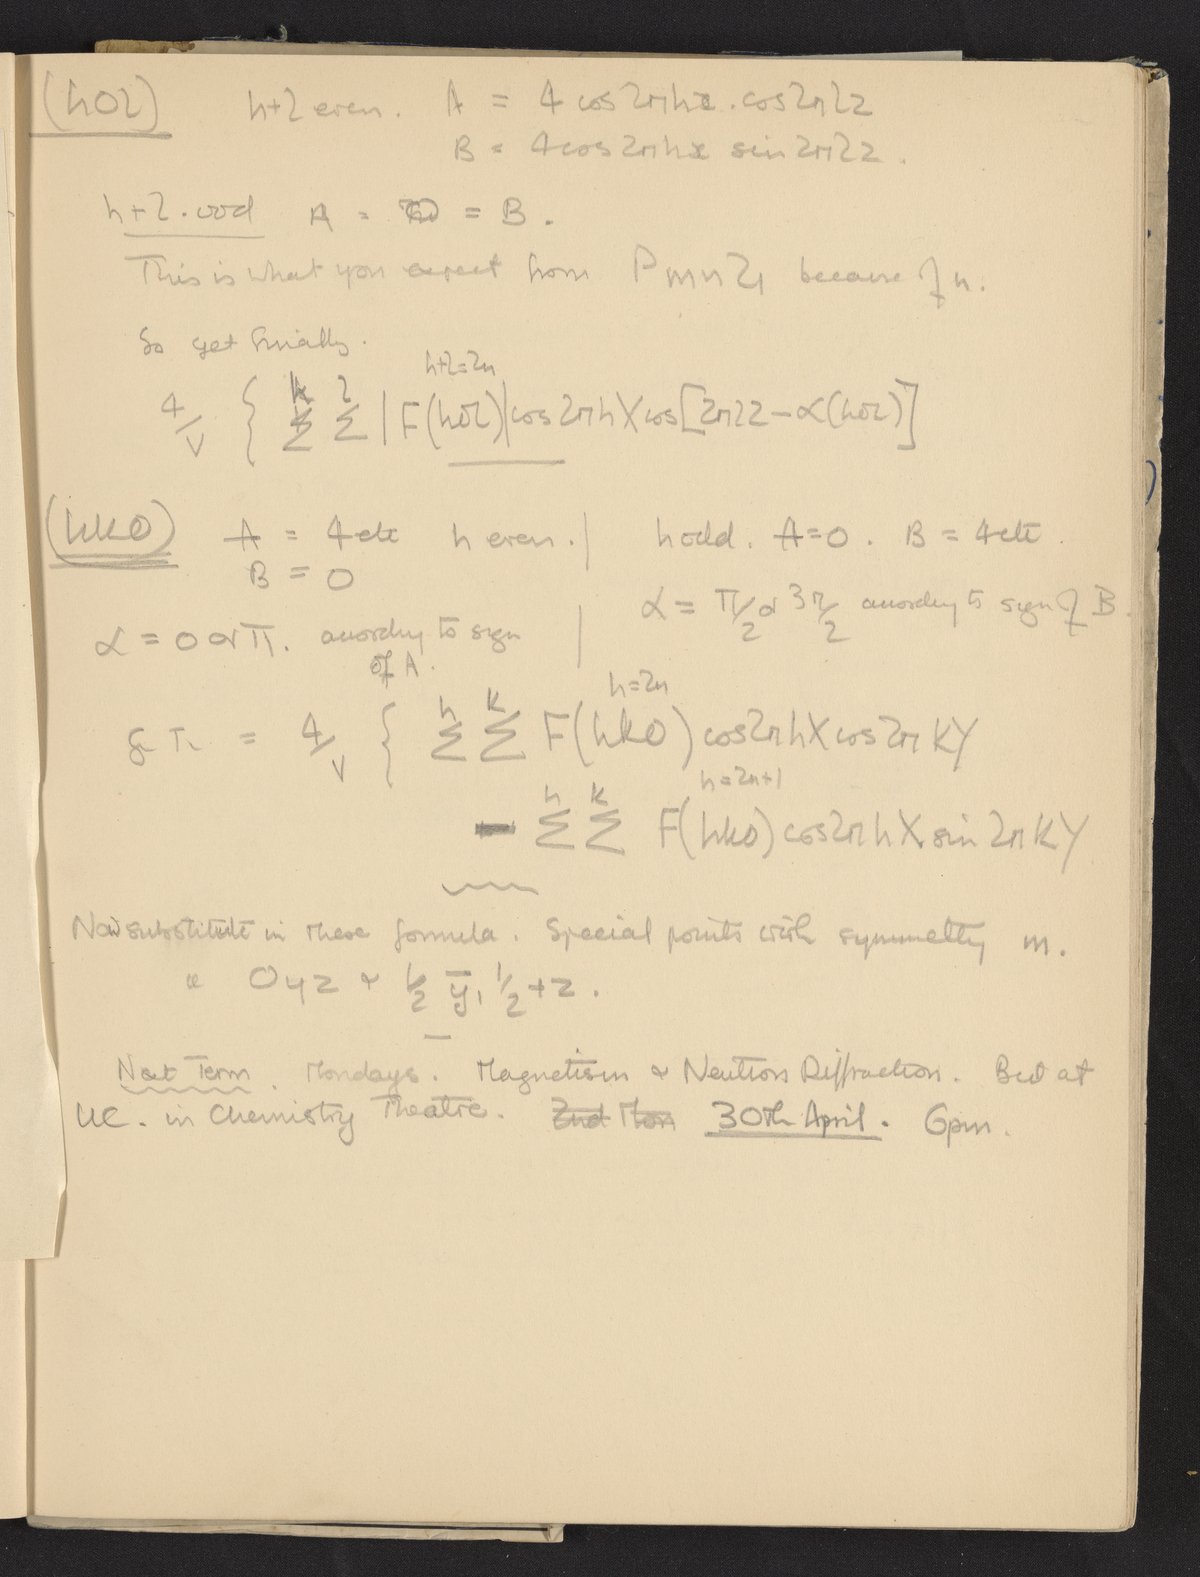 (h0l) h+l even. A = 4 cos2πhx . cos2πlz
B = 4cos2πhx sin2πlz.
h+l. odd A = 0 = B.
This is what you expect from Pmn2₁ because of n.
So get finally.
h+l=2n
4/V { Σ^h Σ^l |F(h0l)| cos2πhX cos[2πlz - α(h0l)]
(hk0) A = 4 etc h even. | h odd. A=0. B = 4etc.
B = 0
α = π/2 or 3π/2 according to sign of B.
α = 0 or π. according to sign
of A.
h=2n
= 4/V { Σ^h Σ^k F(hk0) cos2πhX cos2πkY
h=2n+1
- Σ^h Σ^k F(hk0) cos2πhX sin2πkY
Now substitute in these formula. Special points with symmetry m.
0yz & ½ ȳ, ½+z.
Next Term. Mondays. Magnetism & Neutron Diffraction. at
UC. in Chemistry Theatre. 2nd Mon 30th April. 6pm.